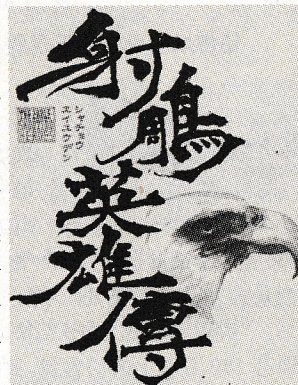 射鵰英雄傳
シャチョウ
エイユウデン